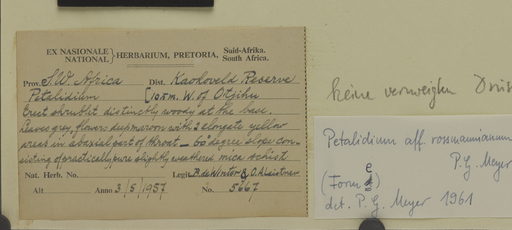 EX NASIONALE
NATIONAL } HERBARIUM, PRETORIA, Suid-Afrika.
South Africa.
Prov. S.W. Africa Dist. Kaokoveld Reserve
Petalidium [10.5m. W. of Otjihu
Erect shrublit distinctly woody at the base.
Leaves grey, flowers deep maroon with 2 elongate yellow
areas in abaxial part of throat — 60 degree slope con-
sisting of practically pure slightly weathered mica schist
Nat. Herb. No. Legit B. de Winter & O. A. Leistner
Alt Anno 3/5/1957 No. 5667
keine verzweigten
Petalidium aff. rossmannianum
P.G. Meyer
(Form e)
det. P.G. Meyer 1961